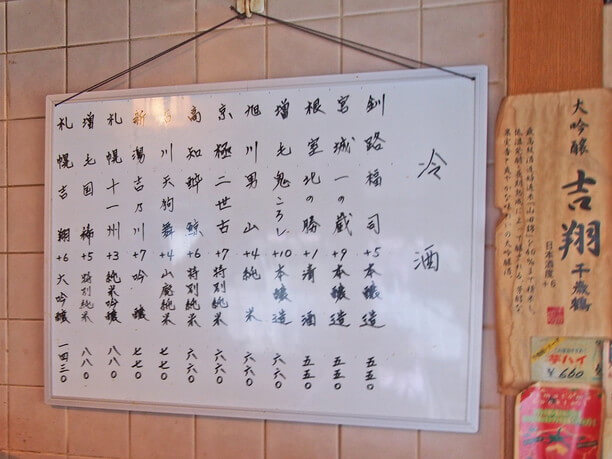 冷酒
釧路福司+5本醸造五五〇
宮城一の蔵+9本醸造五五〇
根室北の勝+1清酒五五〇
増毛鬼ころし+10本醸造六六〇
旭川男山+4純米六六〇
京極二世古+7特別純米六六〇
高知酔鯨+6特別純米六六〇
石川天狗舞+4山廃純米七七〇
新潟吉乃川+7吟醸七七〇
札幌十一州+3純米吟醸八八〇
増毛国稀+5特別純米八八〇
札幌吉翔+6大吟醸一四三〇
大吟醸
吉翔
千歳鶴
日本酒度+6
芋ハイ
660